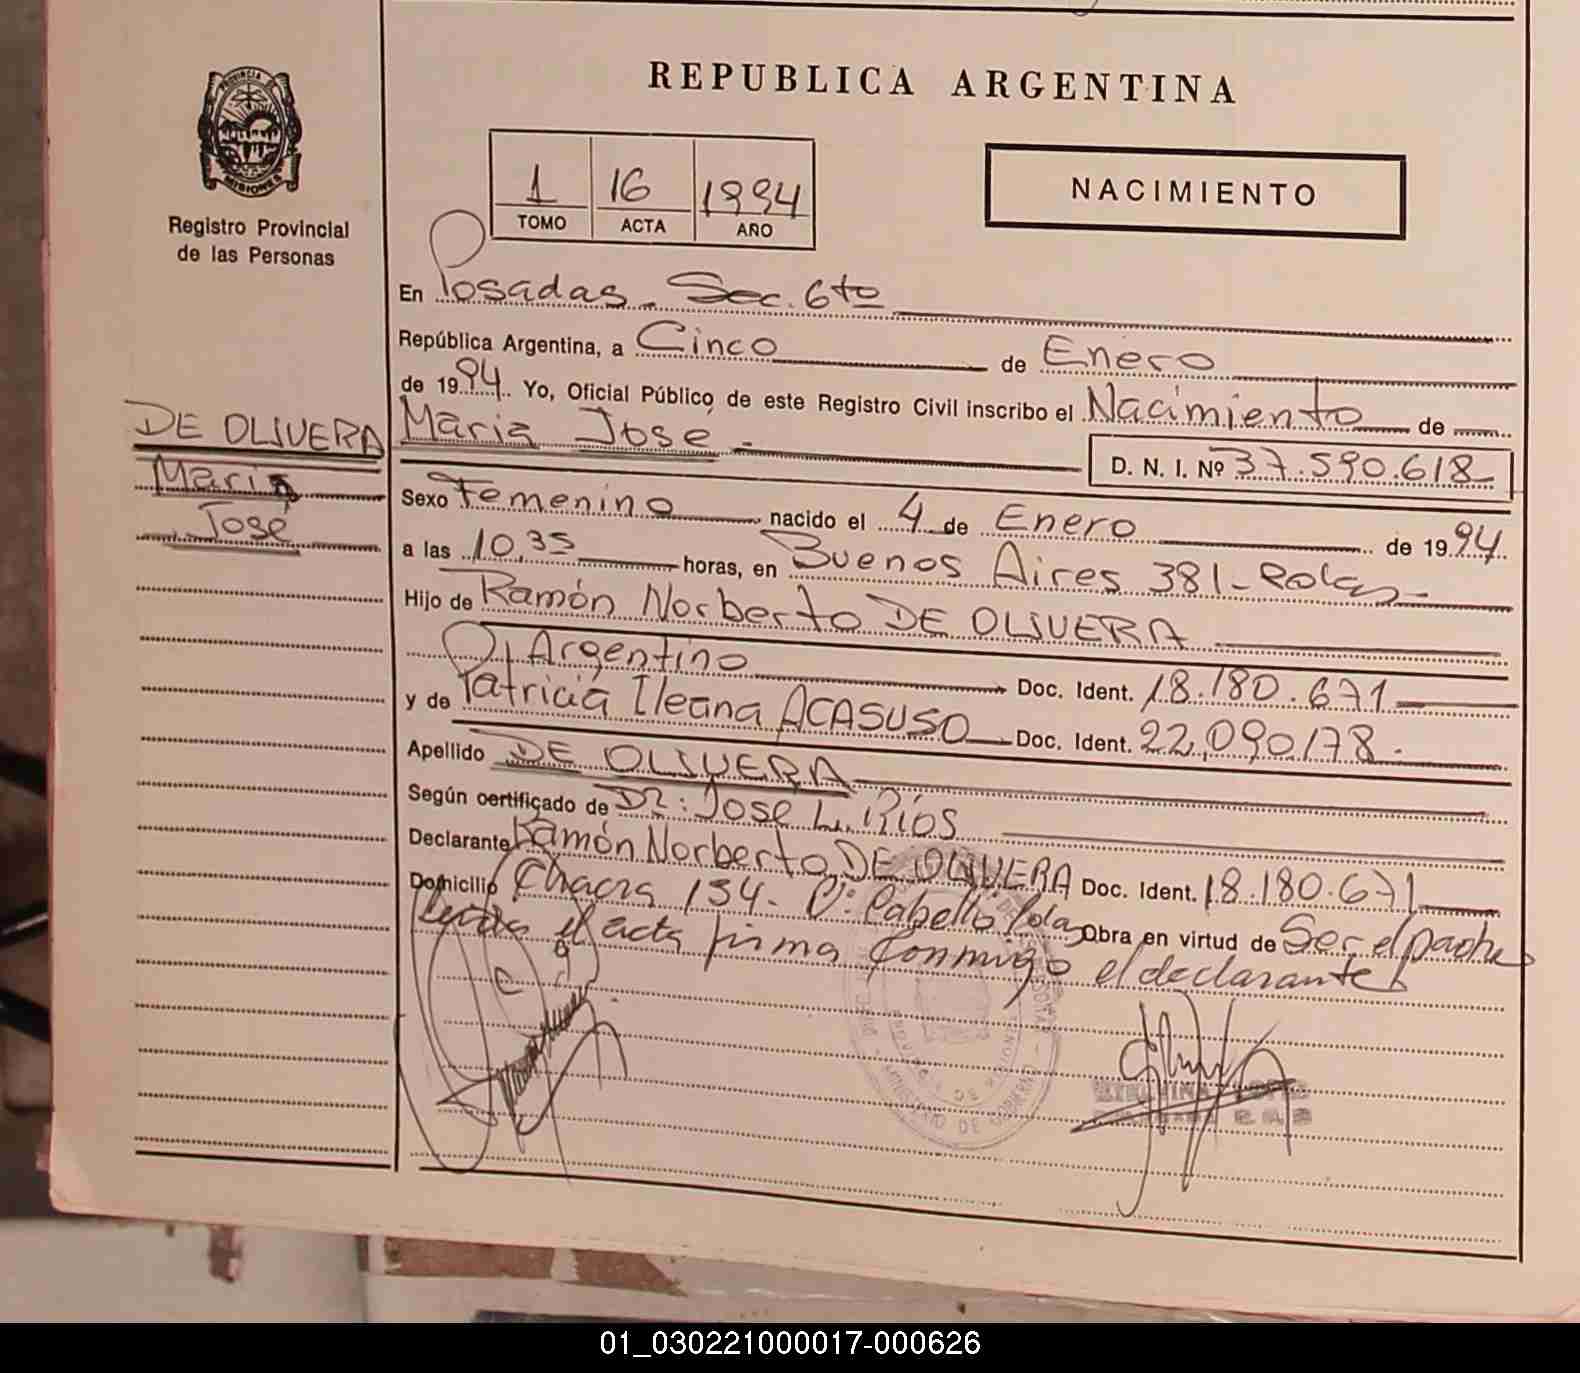 REPUBLICA ARGENTINA
PROVINCIA DE
MISIONES
Registro Provincial
de las Personas
1 16 1994
TOMO ACTA AÑO
NACIMIENTO
En Posadas - Sec. 6to
República Argentina, a Cinco de Enero
de 1994. Yo, Oficial Público de este Registro Civil inscribo el Nacimiento de
DE OLIVERA
Maria
José
Maria José -
D. N. I. Nº 37.590.618
Sexo Femenino nacido el 4 de Enero de 1994.
a las 10,35 horas, en Buenos Aires 381 -
Hijo de Ramón Norberto DE OLIVERA
Argentino Doc. Ident. 18.180.671
y de Patricia Ileana ACASUSO Doc. Ident. 22.090.178.
Apellido DE OLIVERA
Según certificado de Dr: José L. Ríos
Declarante Ramón Norberto DE OLIVERA Doc. Ident. 18.180.671
Domicilio Chacra 154 - Vº Cabello Obra en virtud de Ser el padre
Leida el acta firma conmigo el declarante
MINISTERIO DE GOBIERNO
01_030221000017-000626